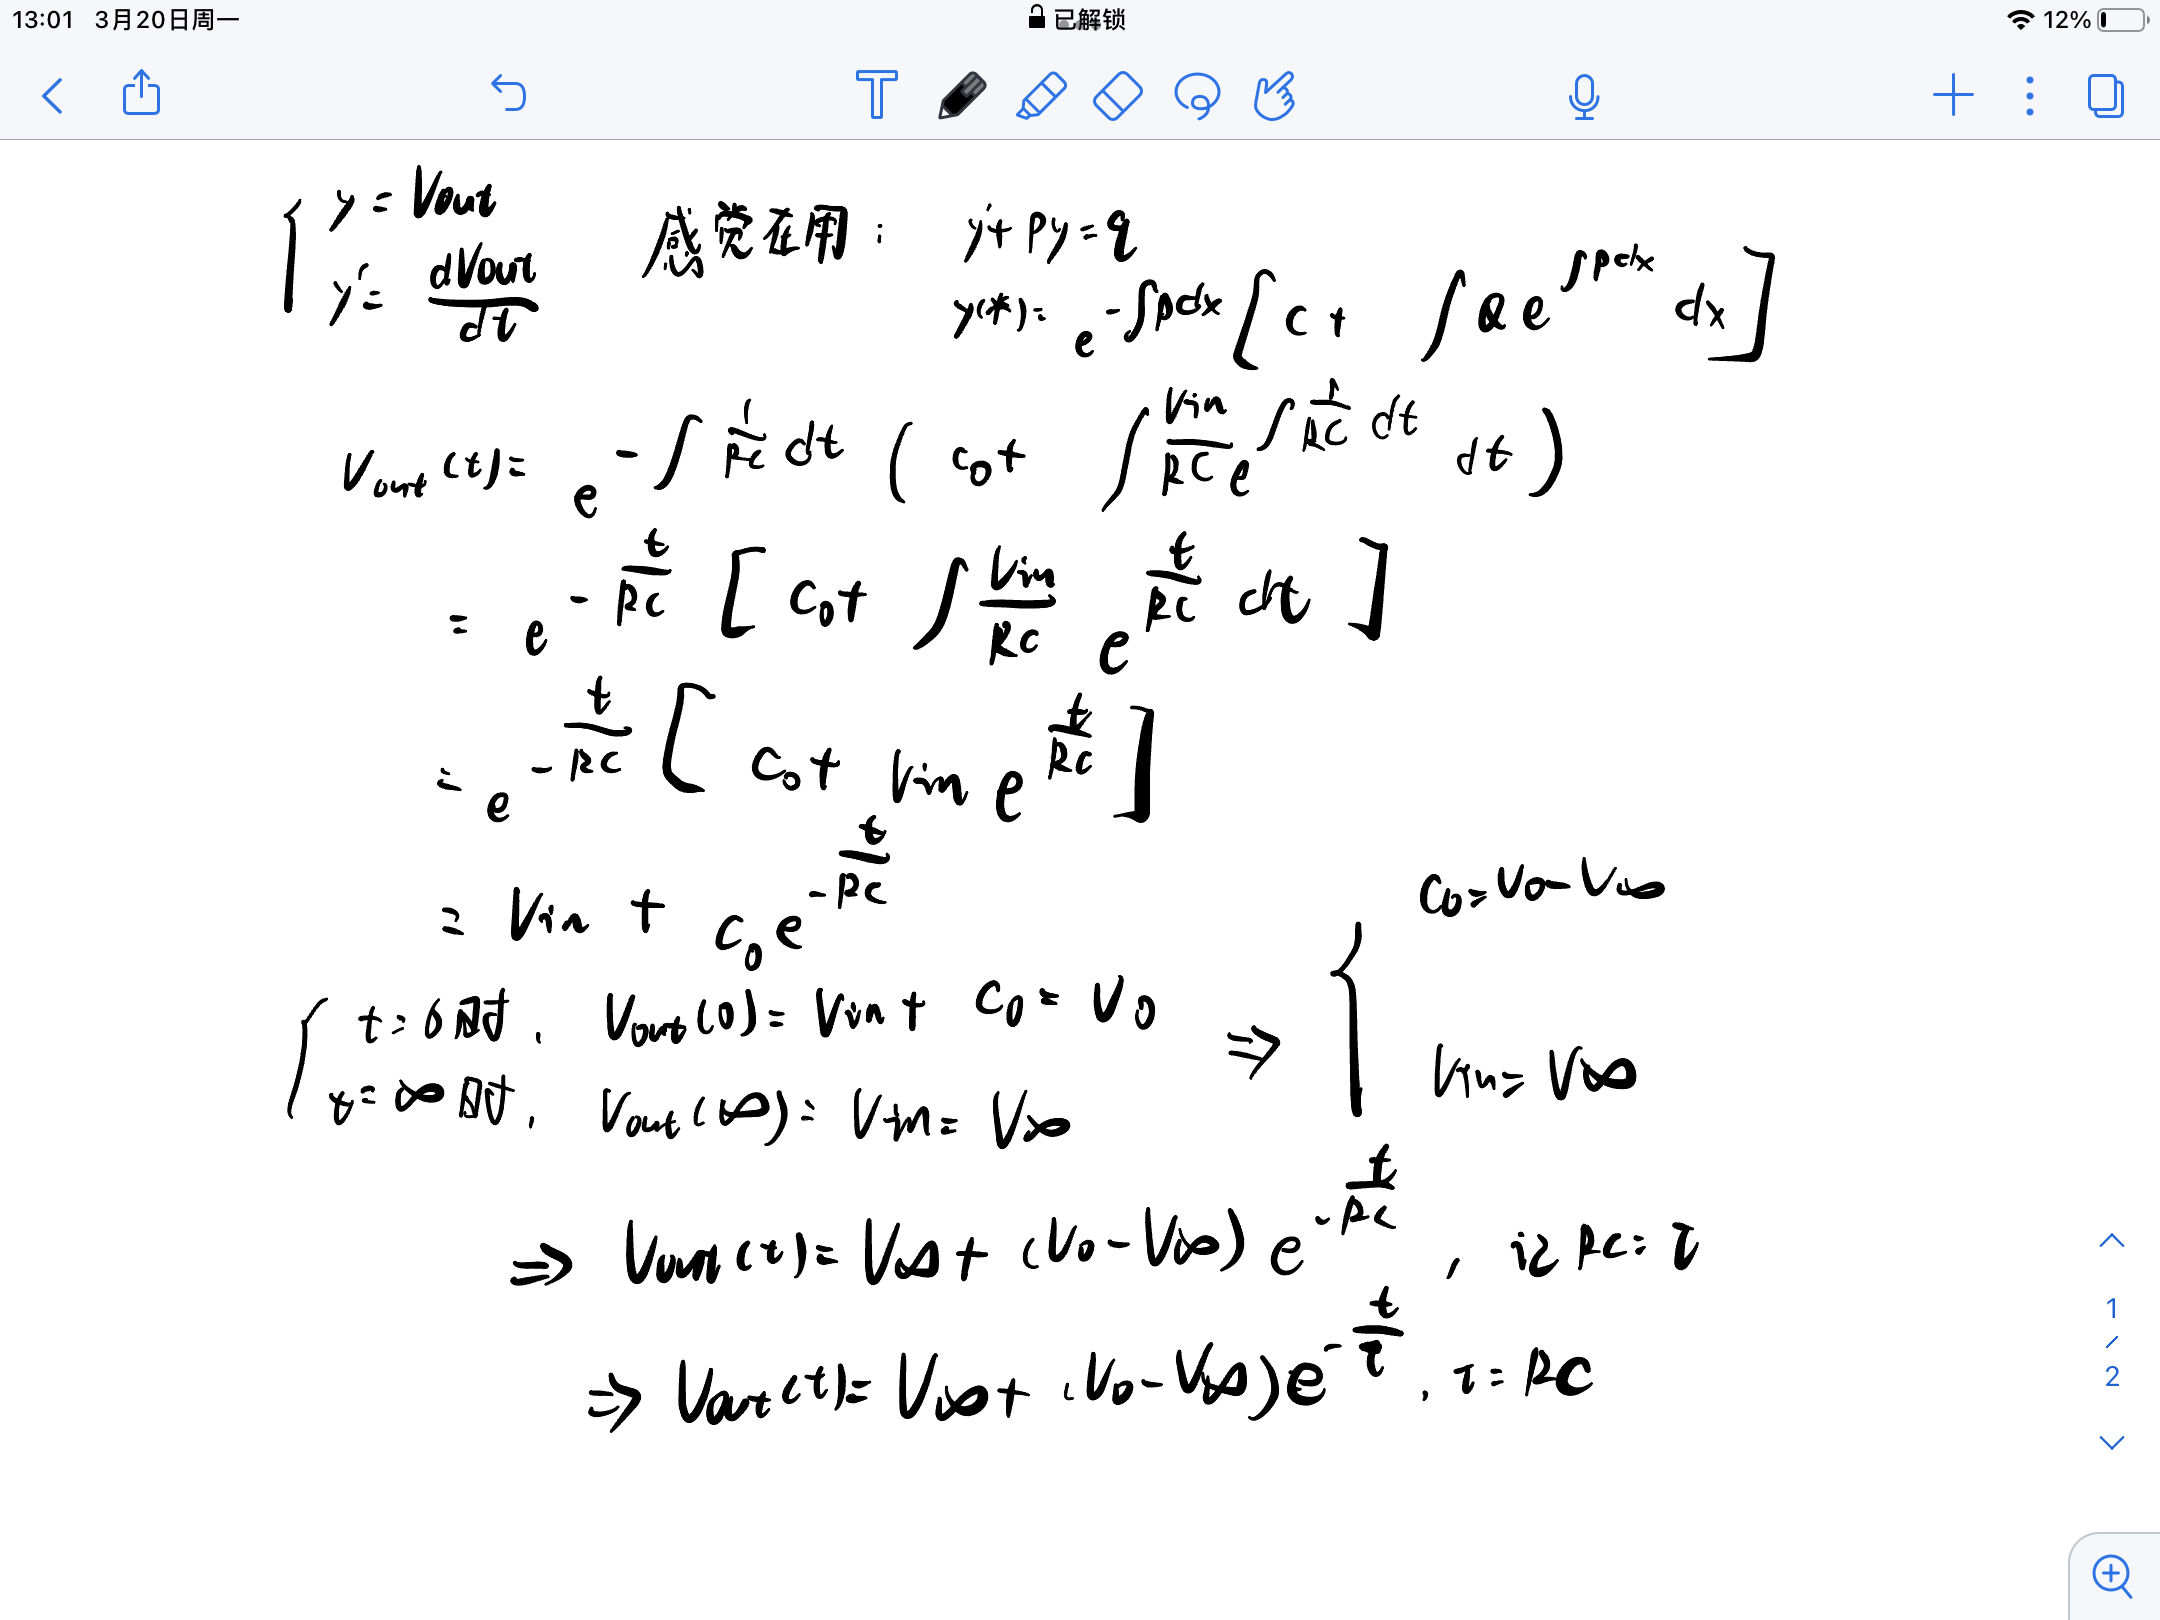 13:01 3月20日周一 已解锁 12%
T
y = Vout
y' = dVout/dt
感觉在用: y'+py=q
y(*)= e^{-∫pdx} [C + ∫Q e^{∫pdx} dx]
Vout(t)= e^{-∫ 1/RC dt} (C₀+ ∫ Vin/RC e^{∫ 1/RC dt} dt)
= e^{-t/RC} [C₀+ ∫ Vin/RC e^{t/RC} dt]
= e^{-t/RC} [C₀+ Vin e^{t/RC}]
= Vin + C₀e^{-t/RC}
t=0时, Vout(0)= Vin+ C₀= V₀
t=∞时, Vout(∞)= Vin= V∞
⇒ { C₀=V₀-V∞
Vin= V∞
⇒ Vout(t)= V∞+ (V₀-V∞) e^{-t/RC}, 记 RC=τ
⇒ Vout(t)= V∞+ (V₀-V∞)e^{-t/τ}, τ=RC
1
/
2